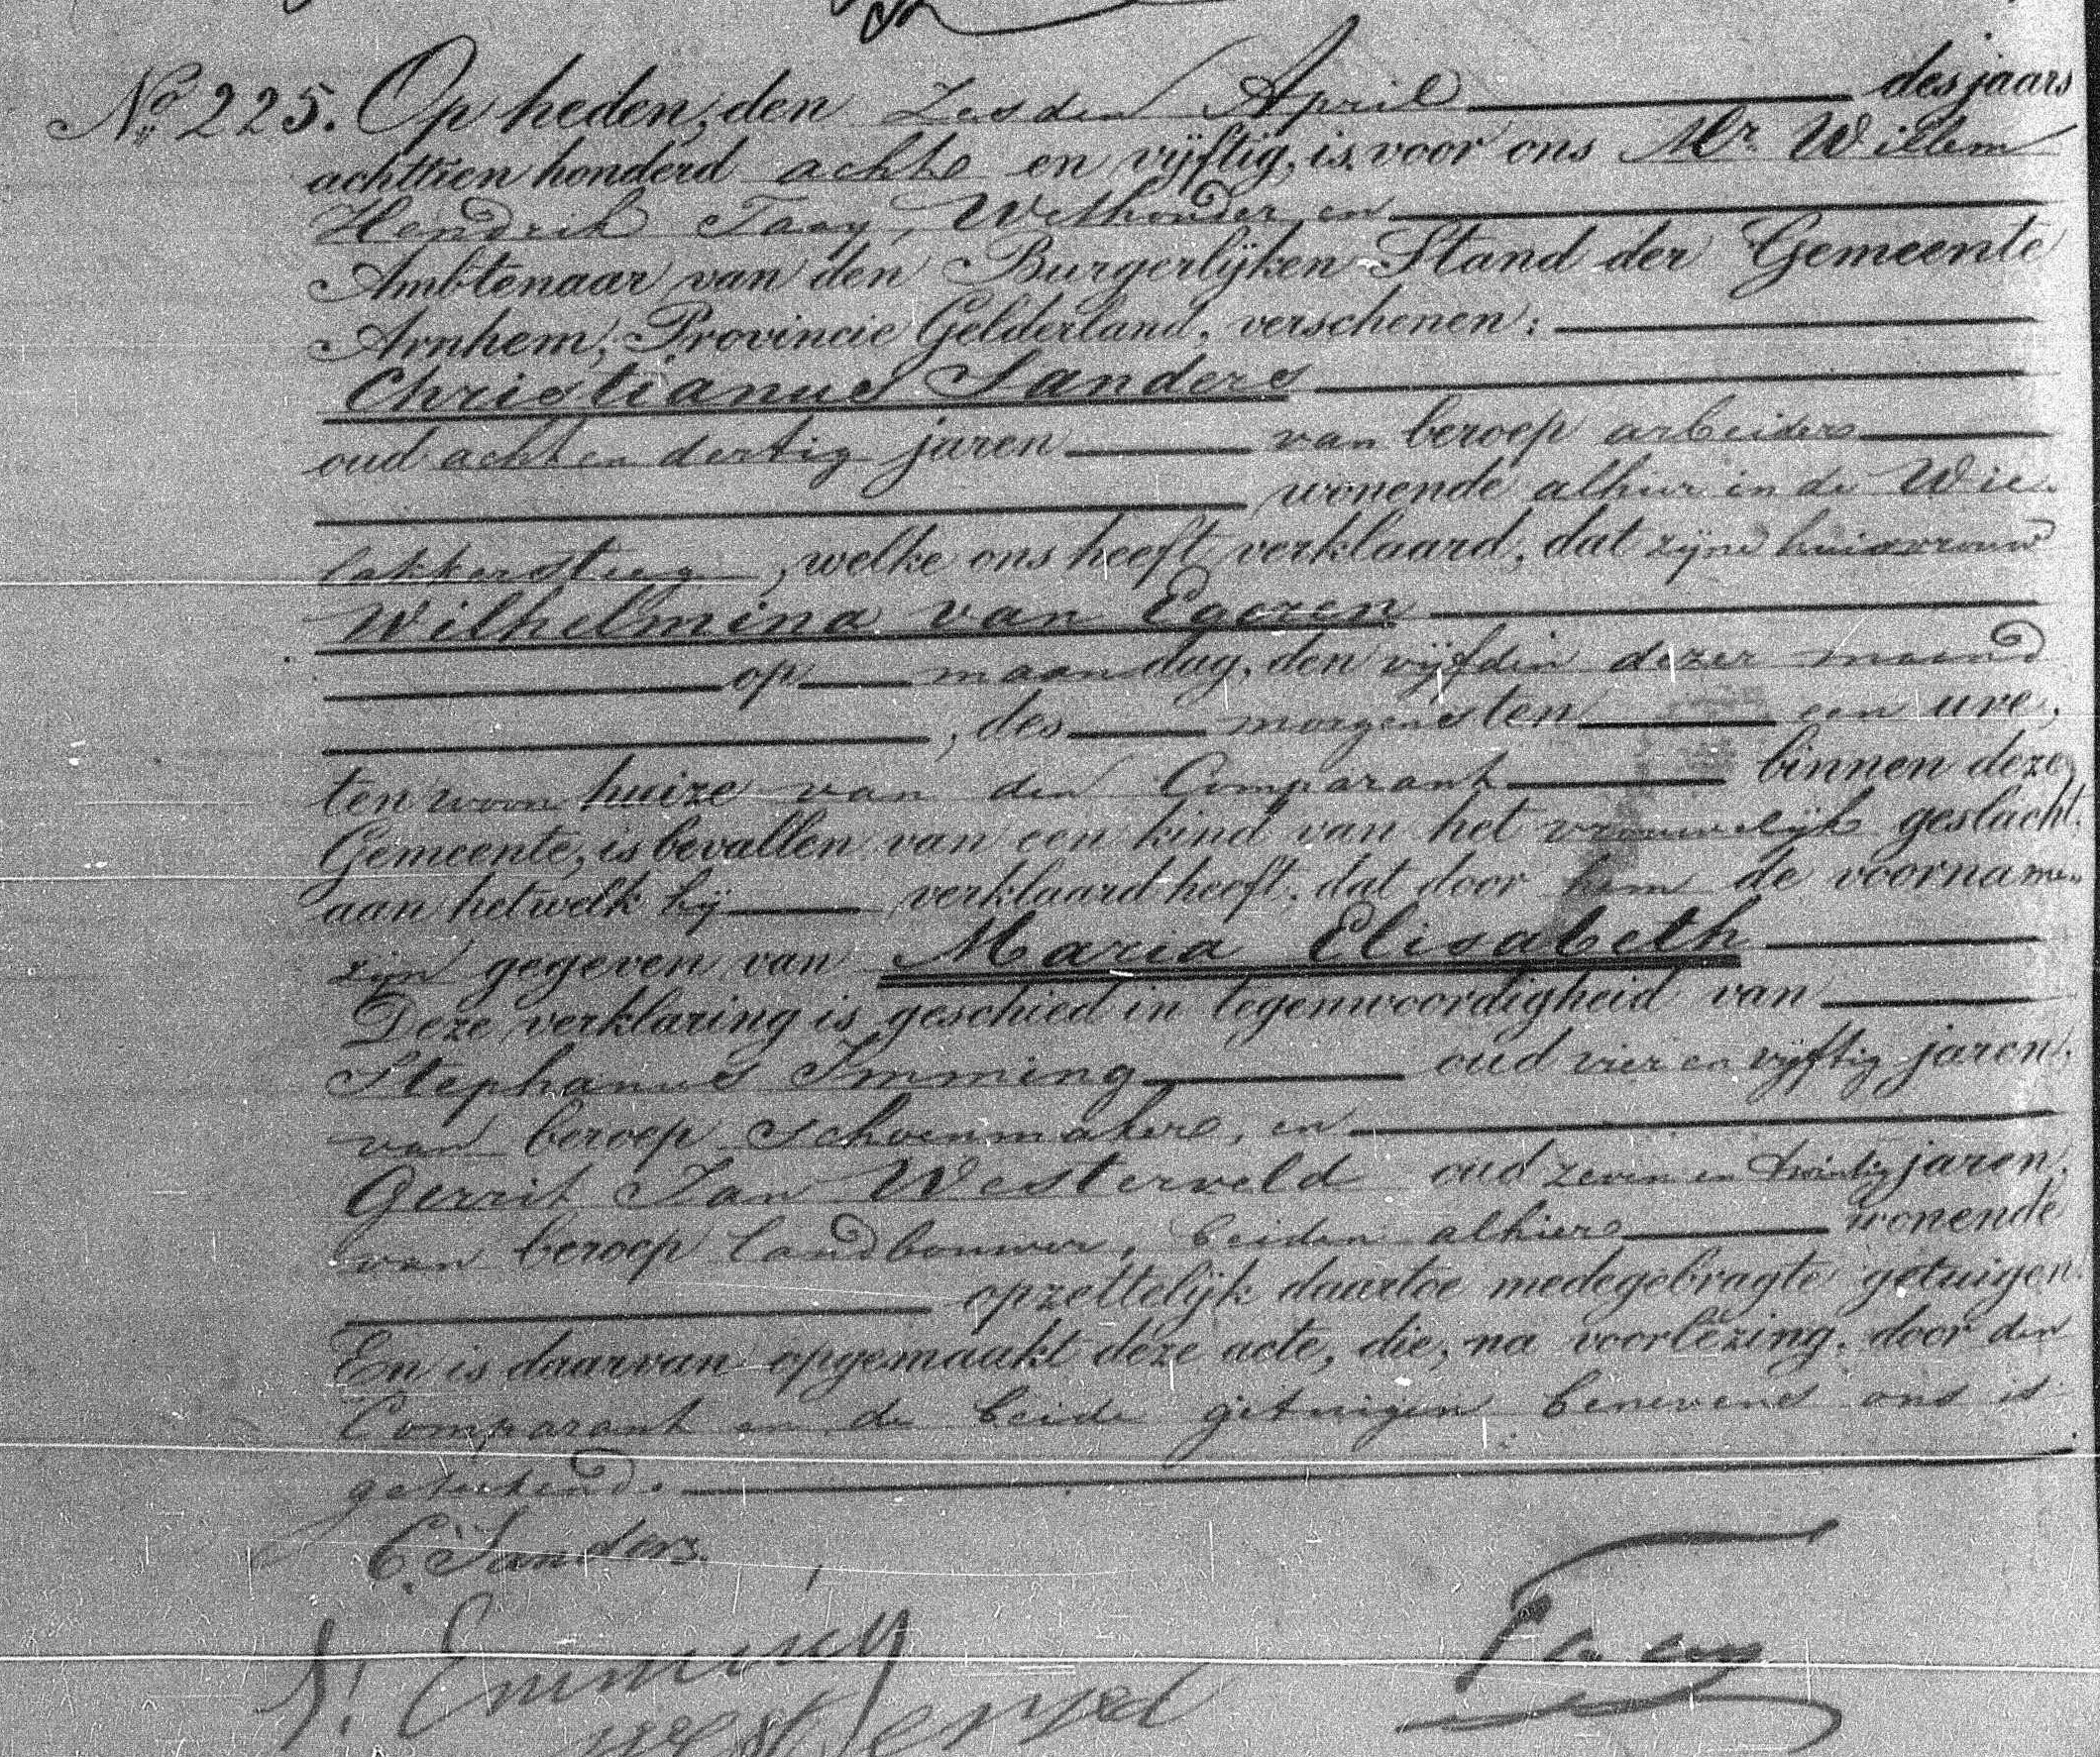 No. 225. Op heden, den Zesden April des jaars
achttien honderd acht en vijftig, is voor ons Mr. Willem
Hendrik Taay, Wethouder, en
Ambtenaar van den Burgerlijken Stand der Gemeente
Arnhem, Provincie Gelderland, verschenen:
Christianus Sanders
oud acht en dertig jaren van beroep arbeider
wonende alhier in de Wie-
lakkersteeg, welke ons heeft verklaard, dat zijne huisvrouw
Wilhelmina van Egeren
op maandag, den vijfden dezer maand
, des morgens ten een ure,
ten woon huize van den Comparant binnen deze
Gemeente, is bevallen van een kind van het vrouwelijk geslacht,
aan hetwelk hij verklaard heeft, dat door hem de voornamen
zijn gegeven van Maria Elisabeth
Deze verklaring is geschied in tegenwoordigheid van
Stephanus Imming oud vier en vijftig jaren,
van beroep schoenmaker, en
Gerrit Jan Westerveld oud zeven en twintig jaren,
van beroep landbouwer, beiden alhier wonende
opzettelijk daartoe medegebragte getuigen.
En is daarvan opgemaakt deze acte, die, na voorlezing, door den
Comparant en de beide getuigen benevens ons is
geteekend.
C. Sanders
S. Emming
Westerveld
Taay